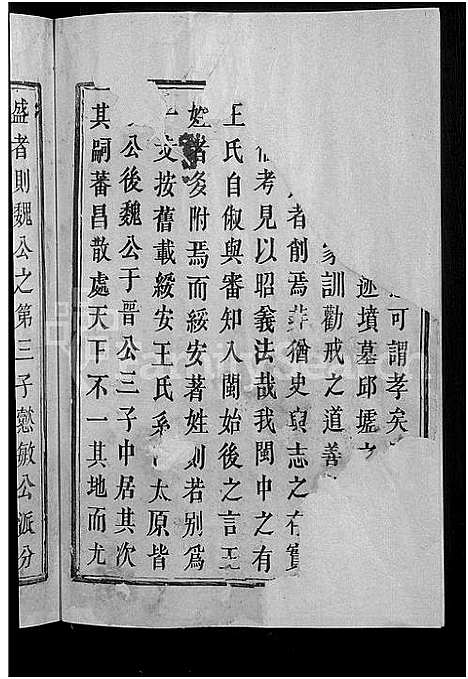 可謂孝矣
逖墳墓邱墟之
家訓勸戒之道善
者創焉非猶史與志之有實
考見以昭義法哉我閩中之有
王氏自俶與審知入閩始後之言王
姓者多附焉而綏安著姓則若別為
支按舊載綏安王氏系 太原皆
公後魏公于晉公三子中居其次
其嗣蕃昌散處天下不一其地而尤
盛者則魏公之第三子懿敏公派分
FamilySearch